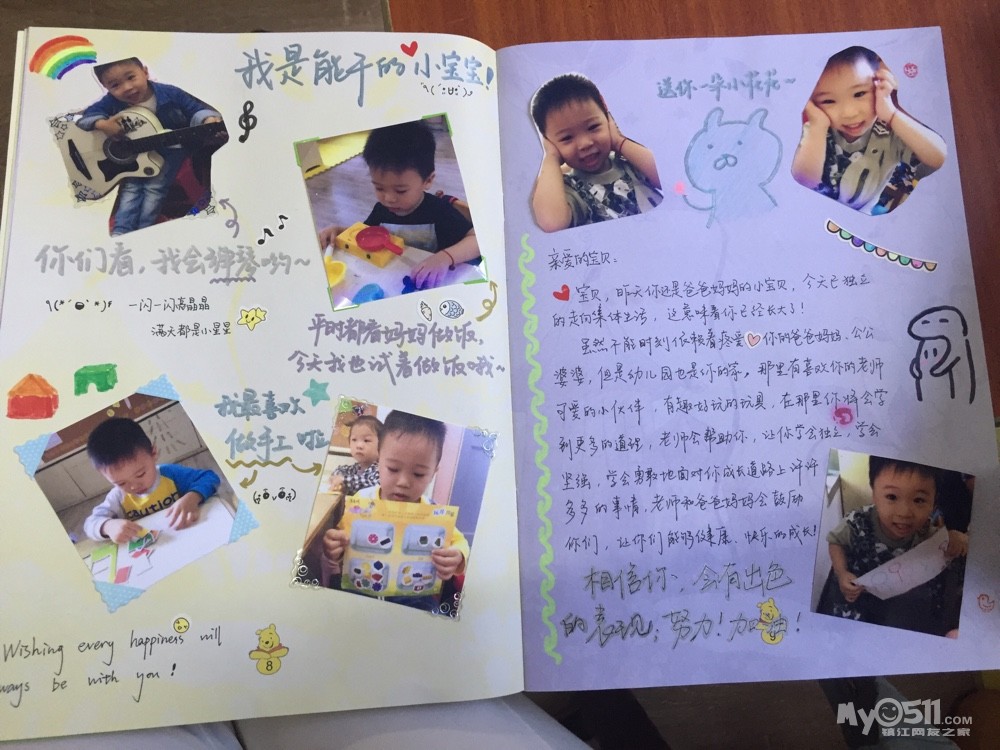 我是能干的小宝宝!
你们看,我会弹琴哟~
一闪一闪亮晶晶
满天都是小星星
平时都看妈妈做饭,
今天我也试着做饭哦~
我最喜欢
做手工啦
CAUTION
Wishing every happiness will
ways be with you!
8
送你一朵小花花~
亲爱的宝贝:
宝贝,昨天你还是爸爸妈妈的小宝贝,今天已独立
的走向集体生活,这意味着你已经长大了!
虽然不能时刻依赖着疼爱你的爸爸妈妈、公公
婆婆,但是幼儿园也是你的家。那里有喜欢你的老师
可爱的小伙伴,有趣好玩的玩具,在那里你将会学
到更多的道理,老师会帮助你,让你学会独立,学会
坚强,学会勇敢地面对你成长道路上许许
多多的事情,老师和爸爸妈妈会鼓励
你们,让你们能够健康、快乐的成长!
相信你:会有出色
的表现,努力!加油!
9
My0511.com
镇江网友之家